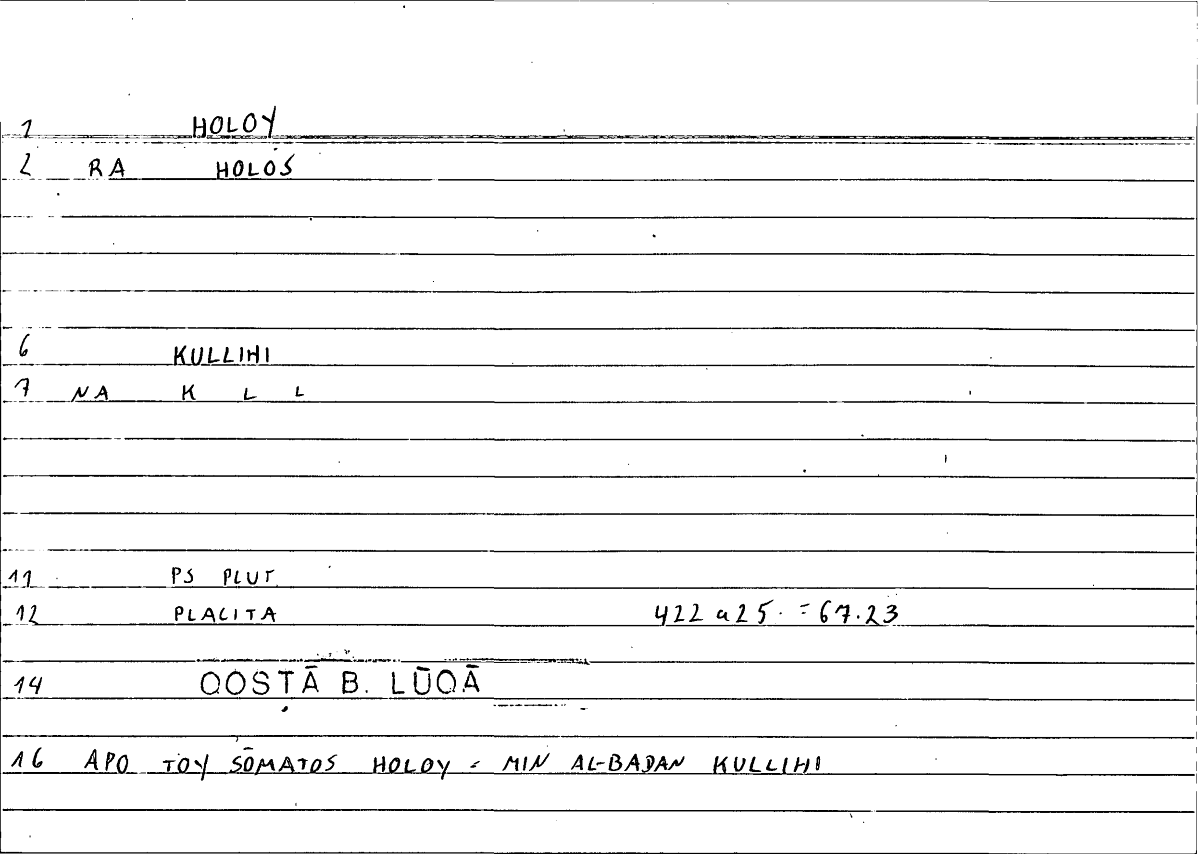 1 HOLOY
2 RA HOLOS
6 KULLIHI
7 NA K L L
11 PS PLUT
12 PLACITA 422 a25. = 67.23
14 QOSṬĀ B. LŪQĀ
16 APO TOY SŌMATOS HOLOY = MIN AL-BADAN KULLIHI